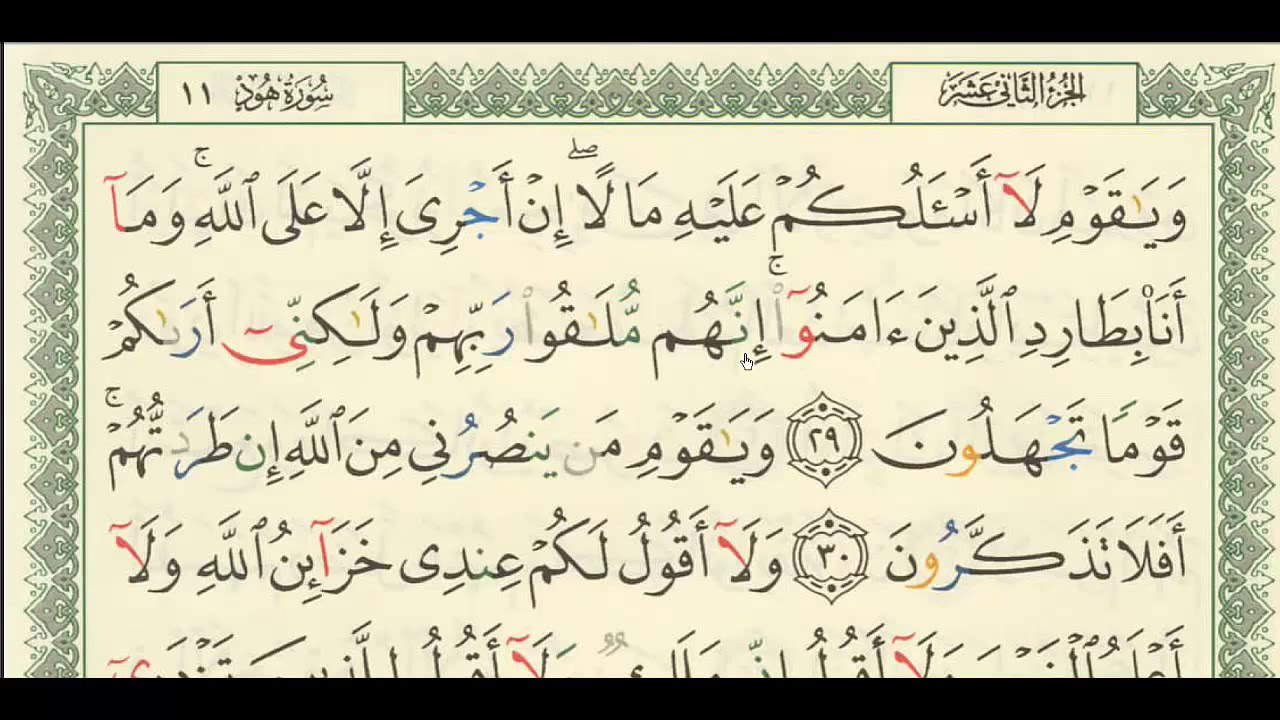 الجزء الثاني عشر
سورة هود ١١
وَيَٰقَوْمِ لَآ أَسْـَٔلُكُمْ عَلَيْهِ مَالًا ۖ إِنْ أَجْرِىَ إِلَّا عَلَى ٱللَّهِ ۚ وَمَآ
أَنَا۠ بِطَارِدِ ٱلَّذِينَ ءَامَنُوٓا۟ ۚ إِنَّهُم مُّلَٰقُوا۟ رَبِّهِمْ وَلَٰكِنِّىٓ أَرَىٰكُمْ
قَوْمًا تَجْهَلُونَ ٢٩ وَيَٰقَوْمِ مَن يَنصُرُنِى مِنَ ٱللَّهِ إِن طَرَدتُّهُمْ ۚ
أَفَلَا تَذَكَّرُونَ ٣٠ وَلَآ أَقُولُ لَكُمْ عِندِى خَزَآئِنُ ٱللَّهِ وَلَآ